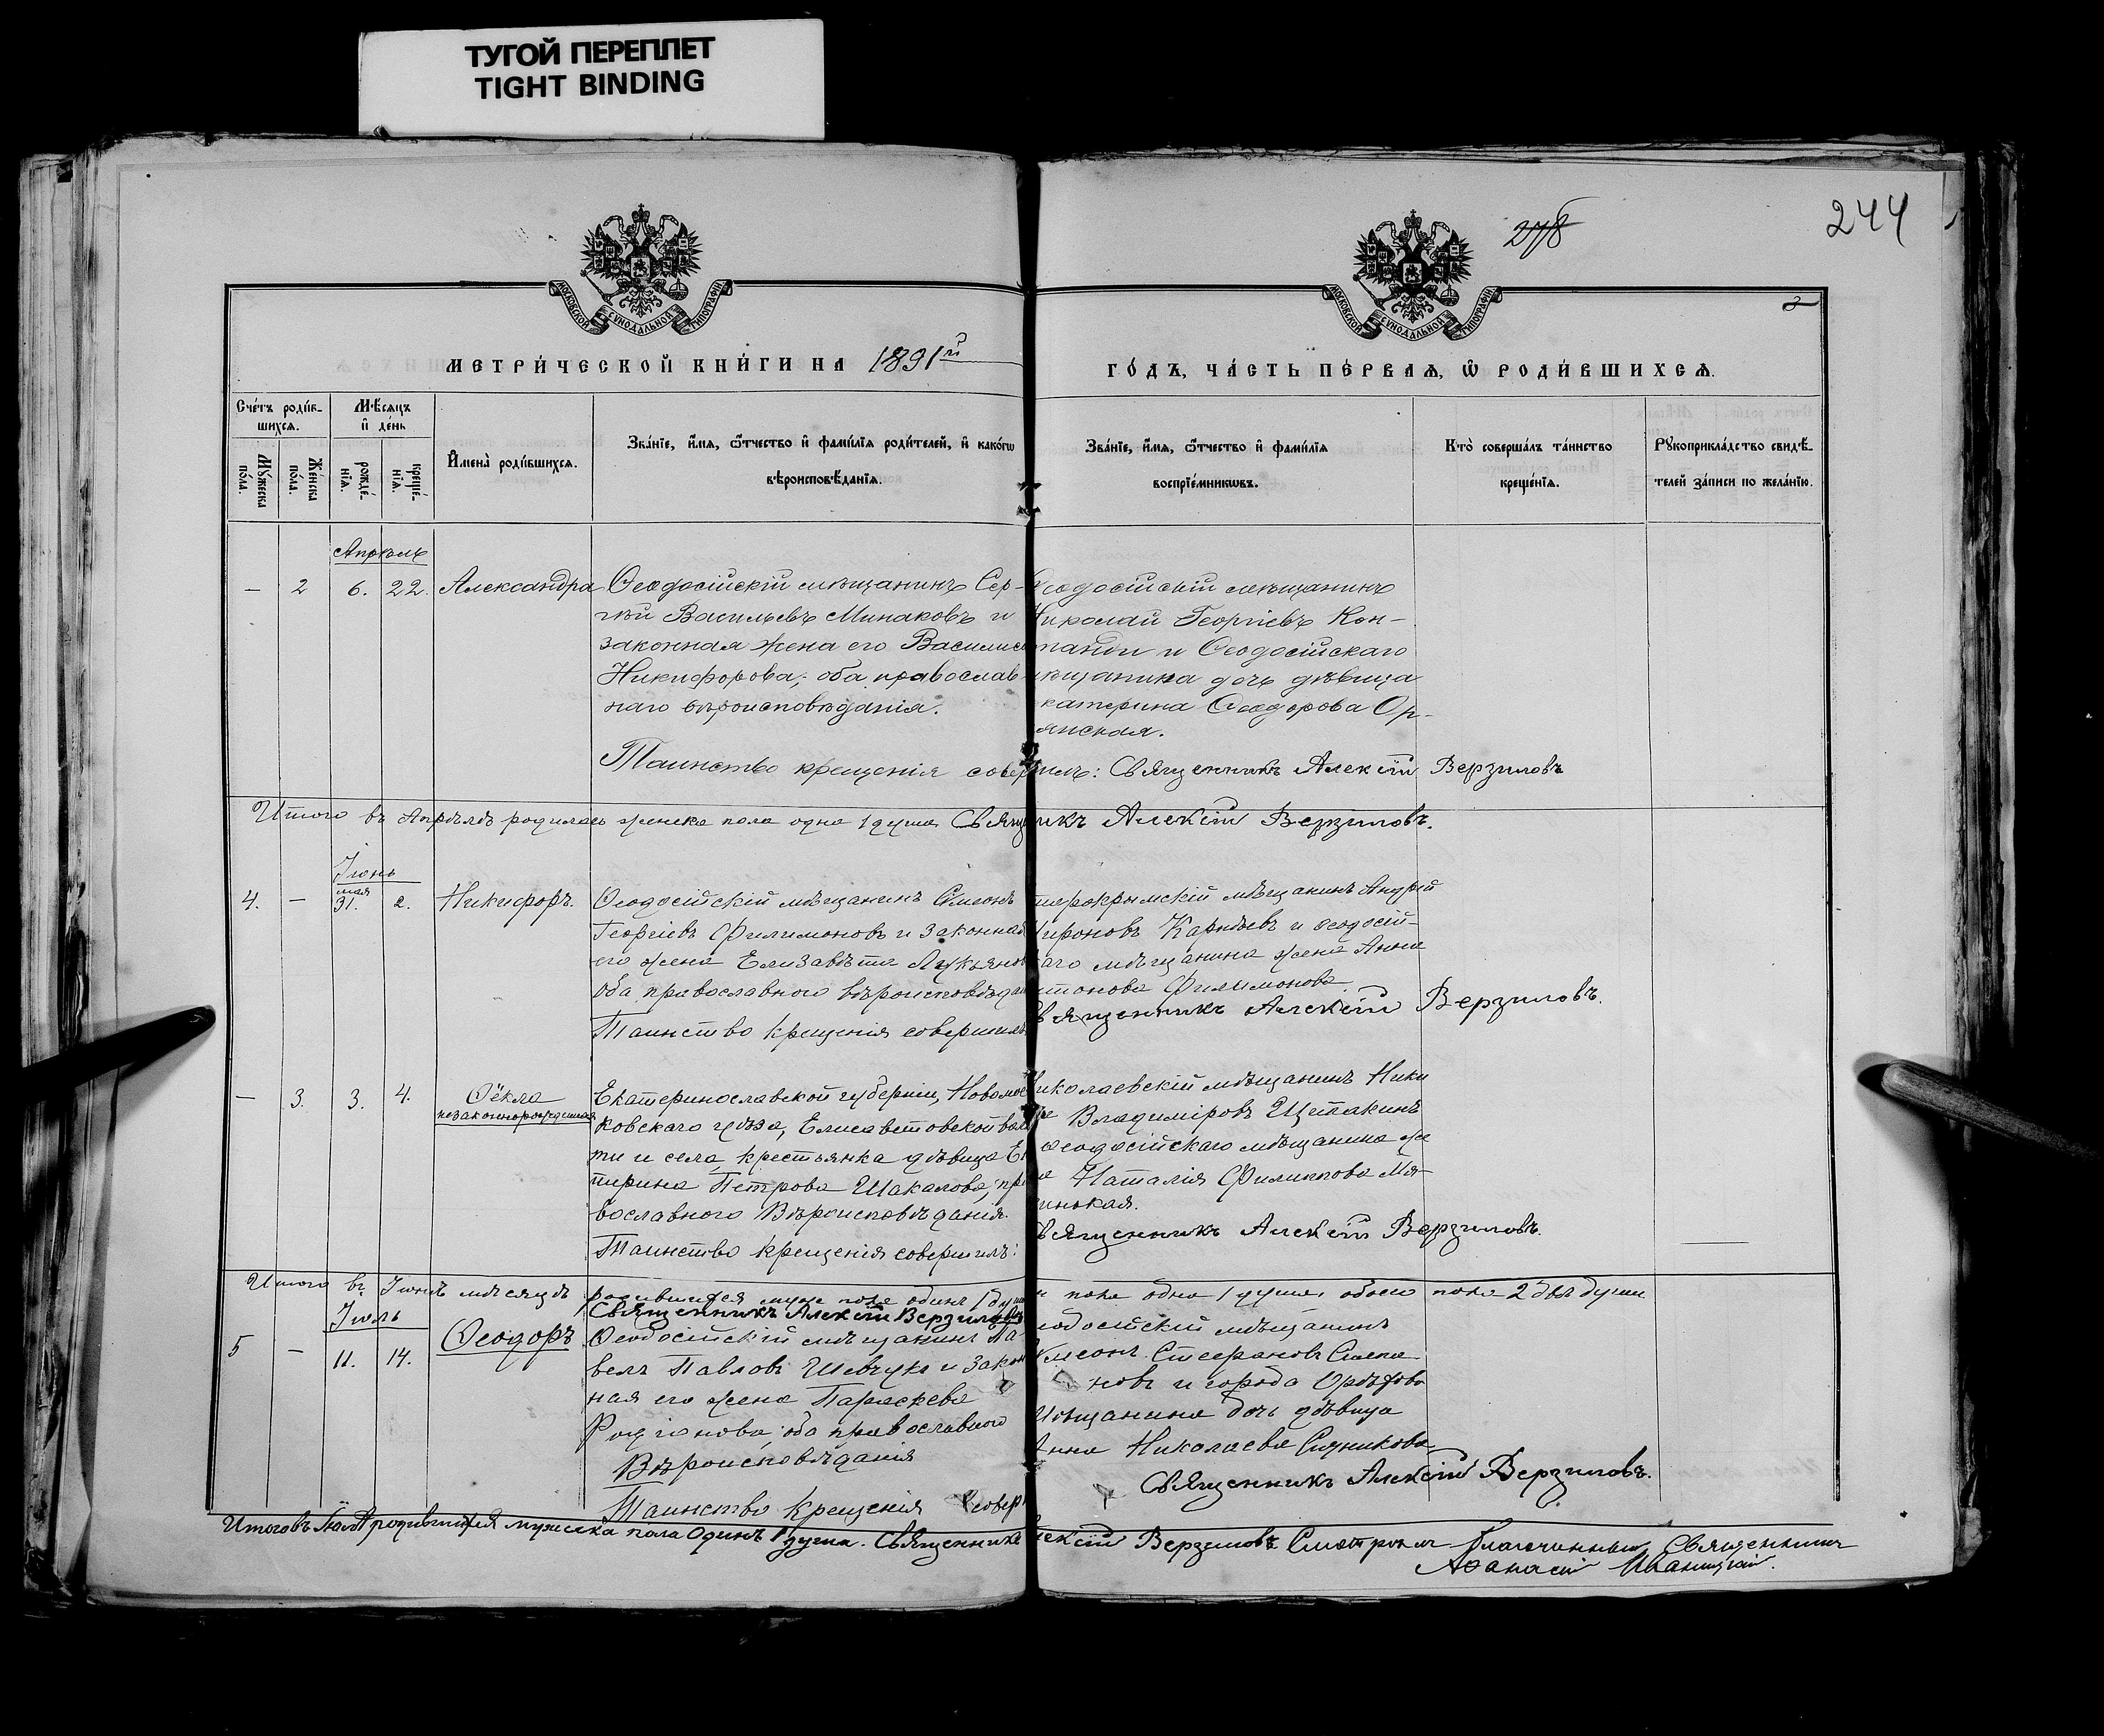 ТУГОЙ ПЕРЕПЛЕТ
TIGHT BINDING
278
244
2
МОСКОВСКОЙ СѴНОДАЛЬНОЙ ТИПОГРАФІИ
МОСКОВСКОЙ СѴНОДАЛЬНОЙ ТИПОГРАФІИ
МЕТРИ́ЧЕСКОЙ КНИ́ГИ НА 1891й
ГО́ДЪ, ЧА́СТЬ ПЕ́РВАѦ, Ѽ РОДИ́ВШИХСѦ.
Сче́тъ роди́вшихсѧ.
Мꙋ́жеска по́ла.
Же́нска по́ла.
Мѣ́сѧцъ и҆ де́нь
рожде́нїѧ.
креще́нїѧ.
И҆мена̀ роди́вшихсѧ.
Зва́нїе, и҆́мѧ, ѻ҆́тчество и҆ фами́лїѧ роди́телей, и҆ како́гѡ
вѣроисповѣ́данїѧ.
Зва́нїе, и҆́мѧ, ѻ҆́тчество и҆ фами́лїѧ
воспрїе́мникѡвъ.
Кто̀ соверша́лъ та́инство
креще́нїѧ.
Рꙋкоприкла́дство свидѣ́-
телей за́писи по жела́нїю.
Апрѣль
— 2 6. 22. Александра Ѳеодосійскій мѣщанинъ Сер-
гѣй Васильевъ Минаковъ и
законная жена его Василиса
Никифорова; оба православ-
наго вѣроисповѣданія.
Ѳеодосійскій мѣщанинъ
Николай Георгіевъ Кон-
и Ѳеодосійскаго
мѣщанина дочь дѣвица
катерина Ѳеодорова Ор-
янская.
Таинство крещенія совершилъ: Священникъ Алексій Верзиловъ
Итого въ Апрѣлѣ родилась женска пола одна 1 душа Священникъ Алексій Верзиловъ.
Іюнь
4. — мая 31. 2. Никифоръ. Ѳеодосійскій мѣщанинъ Симеонъ
Георгіевъ Филимоновъ и законная
его жена Елизавѣта Лукьянова
оба православного вѣроисповѣдан
Таинство крещенія совершилъ
тарокрымскій мѣщанинъ Андрій
Мироновъ и ѳеодосій-
каго мѣщанина жена Анна
Филимонова
Священникъ Алексій Верзиловъ.
— 3. 3. 4. Ѳёкла
незаконнорожденная
Екатеринославской губерніи, Новомос
ковскаго уѣзда, Елисаветовской вол
ти и села, крестьянка дѣвица Ек
терина Петрова Шакалова; пра
вославного Вѣроисповѣданія.
Таинство крещенія совершилъ:
Николаевскій мѣщанинъ Ники
Владиміровъ Щетакинъ
ѳеодосійскаго мѣщанина же
на Наталія Филиппова Мя-
Священникъ Алексій Верзиловъ.
Итого въ Іюнѣ мѣсяцѣ родившихся муж пола одинъ 1 душ пола одна 1 душа, обоего пола 2 двѣ души
Священникъ Алексій Верзиловъ
Іюль
5 — 11. 14. Ѳеодоръ Ѳеодосійскій мѣщанинъ Па-
велъ Павловъ Шевчукъ и закон
ная его жена Параскева
Родіонова; оба православного
Вѣроисповѣданія
Таинство крещенія совер
еодосійскій мѣщанинъ
Симеонъ Стефановъ Степа
новъ и города Орѣхова
Мѣщанина дочь дѣвица
Анна Николаева
Священникъ Алексій Верзиловъ.
Итого въ Іюлѣ родившихся мужеска пола Одинъ 1 душа. Священникъ Алексій Верзиловъ Смотрѣлъ Благочинный Священникъ
Аѳанасій Иваницкій.